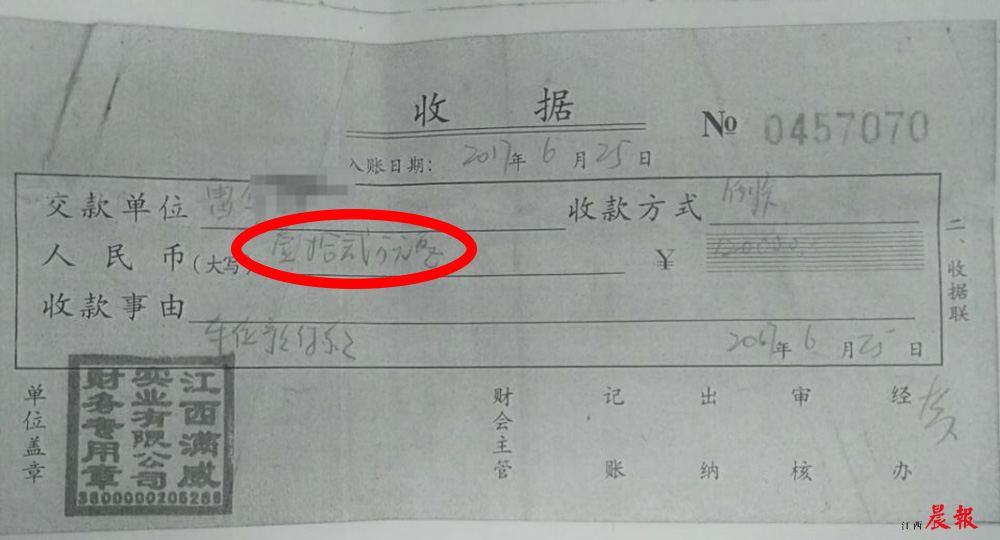 收据
№ 0457070
入账日期: 2017年 6 月 25 日
交款单位
收款方式
人民币 (大写) 壹拾贰万元整 ¥ 120000
收款事由
车位款付款
2017年 6 月 25 日
二、收据联
单位盖章
财会主管
记账
出纳
审核
经办
江西满威
实业有限公司
财务专用章
3600000206286
江西晨報